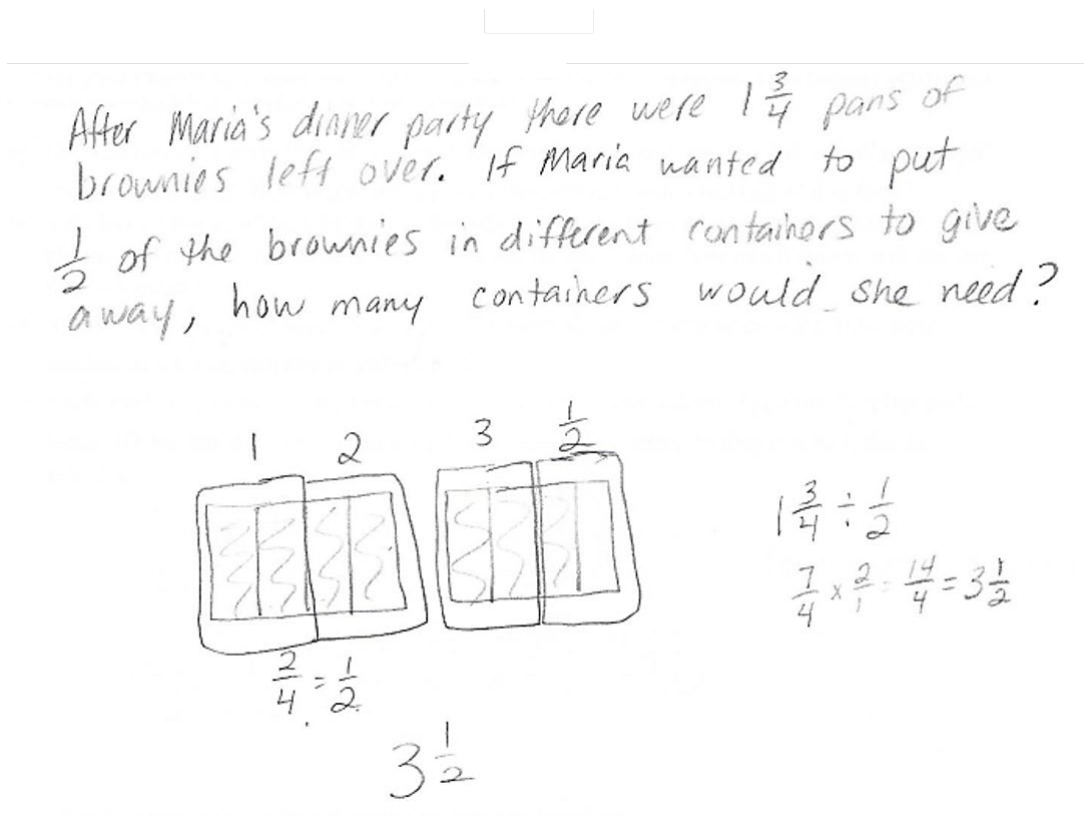 After Maria's dinner party there were 1 3/4 pans of
brownies left over. If Maria wanted to put
1/2 of the brownies in different containers to give
away, how many containers would she need?
1 2 3 1/2
1 3/4 ÷ 1/2
7/4 x 2/1 = 14/4 = 3 1/2
2/4 = 1/2
3 1/2